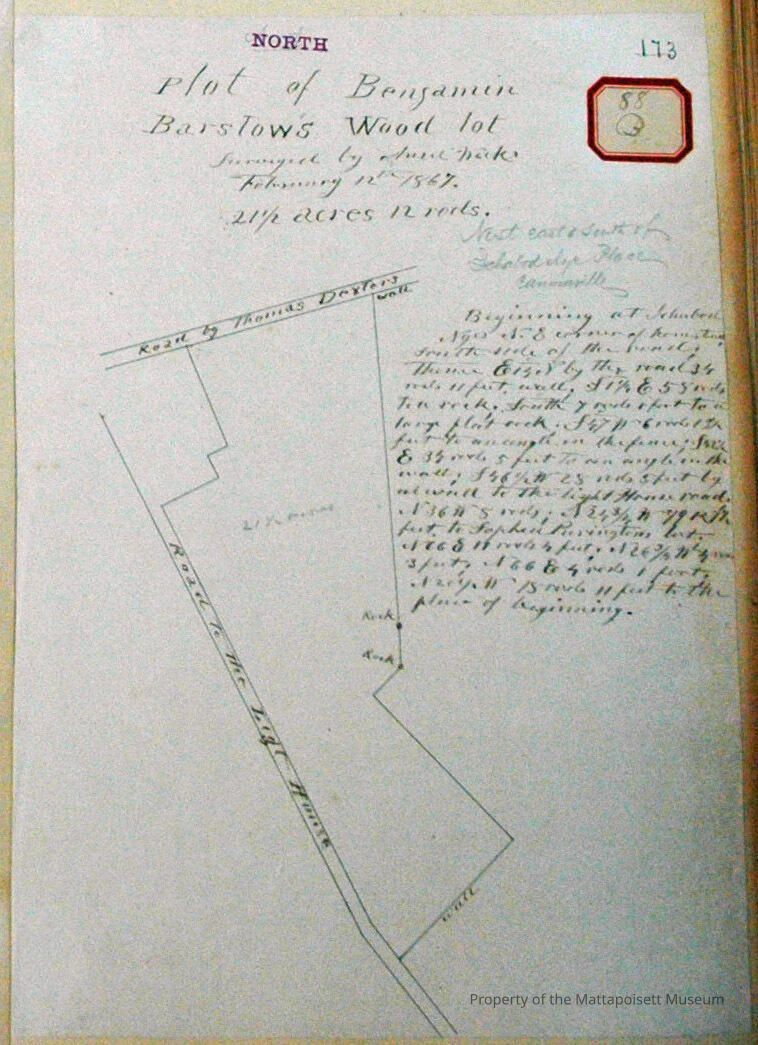 NORTH
173
88
Plot of Benjamin
Barstow's Wood lot
Surveyed by
February 12th 1867.
21½ acres 12 rods.
Next east & south of
Place
Cannonville
Road by Thomas Dexters
wall
Beginning at Ichabod
Nyes N. E corner of homestead
South side of the road;
Thence by the road 34
rods 11 feet, wall, S 1½ E 58 rods
to a rock. South 7 rods feet to a
large flat rock. S 47 W 6 rods 12½
feet to an angle in the fence;
E 34 rods 5 feet to an angle in the
wall; S 46½ W 28 rods 5 feet by
a wall to the Light House road
N 36 W 8 rods; N 24¾ W
feet to Purringtons lot.
N 66 E 11 rods 4 feet; N 26¾ W 4
3 feet; N 66 E 4 rods 1 foot;
W 18 rods 11 feet to the
place of beginning.
21½ acres
Rock
Rock
Road to the Light House
wall
Property of the Mattapoisett Museum